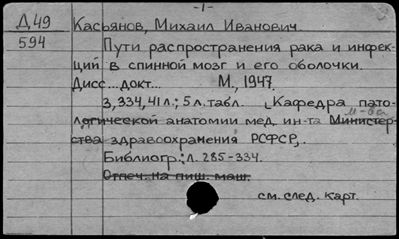 -1-
Д 49
594
Касьянов, Михаил Иванович.
Пути распространения рака и инфек-
ций в спинной мозг и его оболочки.
Дисс...докт... М., 1947.
3,334,41 л.; 5 л. табл. (Кафедра пато-
логической анатомии мед. ин-та Министер-
м-ва
ства здравоохранения РСФСР,.
Библиогр.: л. 285-334.
Отпеч. на пиш. маш.
см. след. карт.